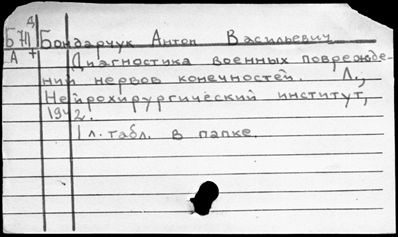 Бондарчук Антон Васильевич
Диагностика военных поврежде-
ний нервов конечностей. Л.,
Нейрохирургический институт,
1942.
1 л. табл. в папке.